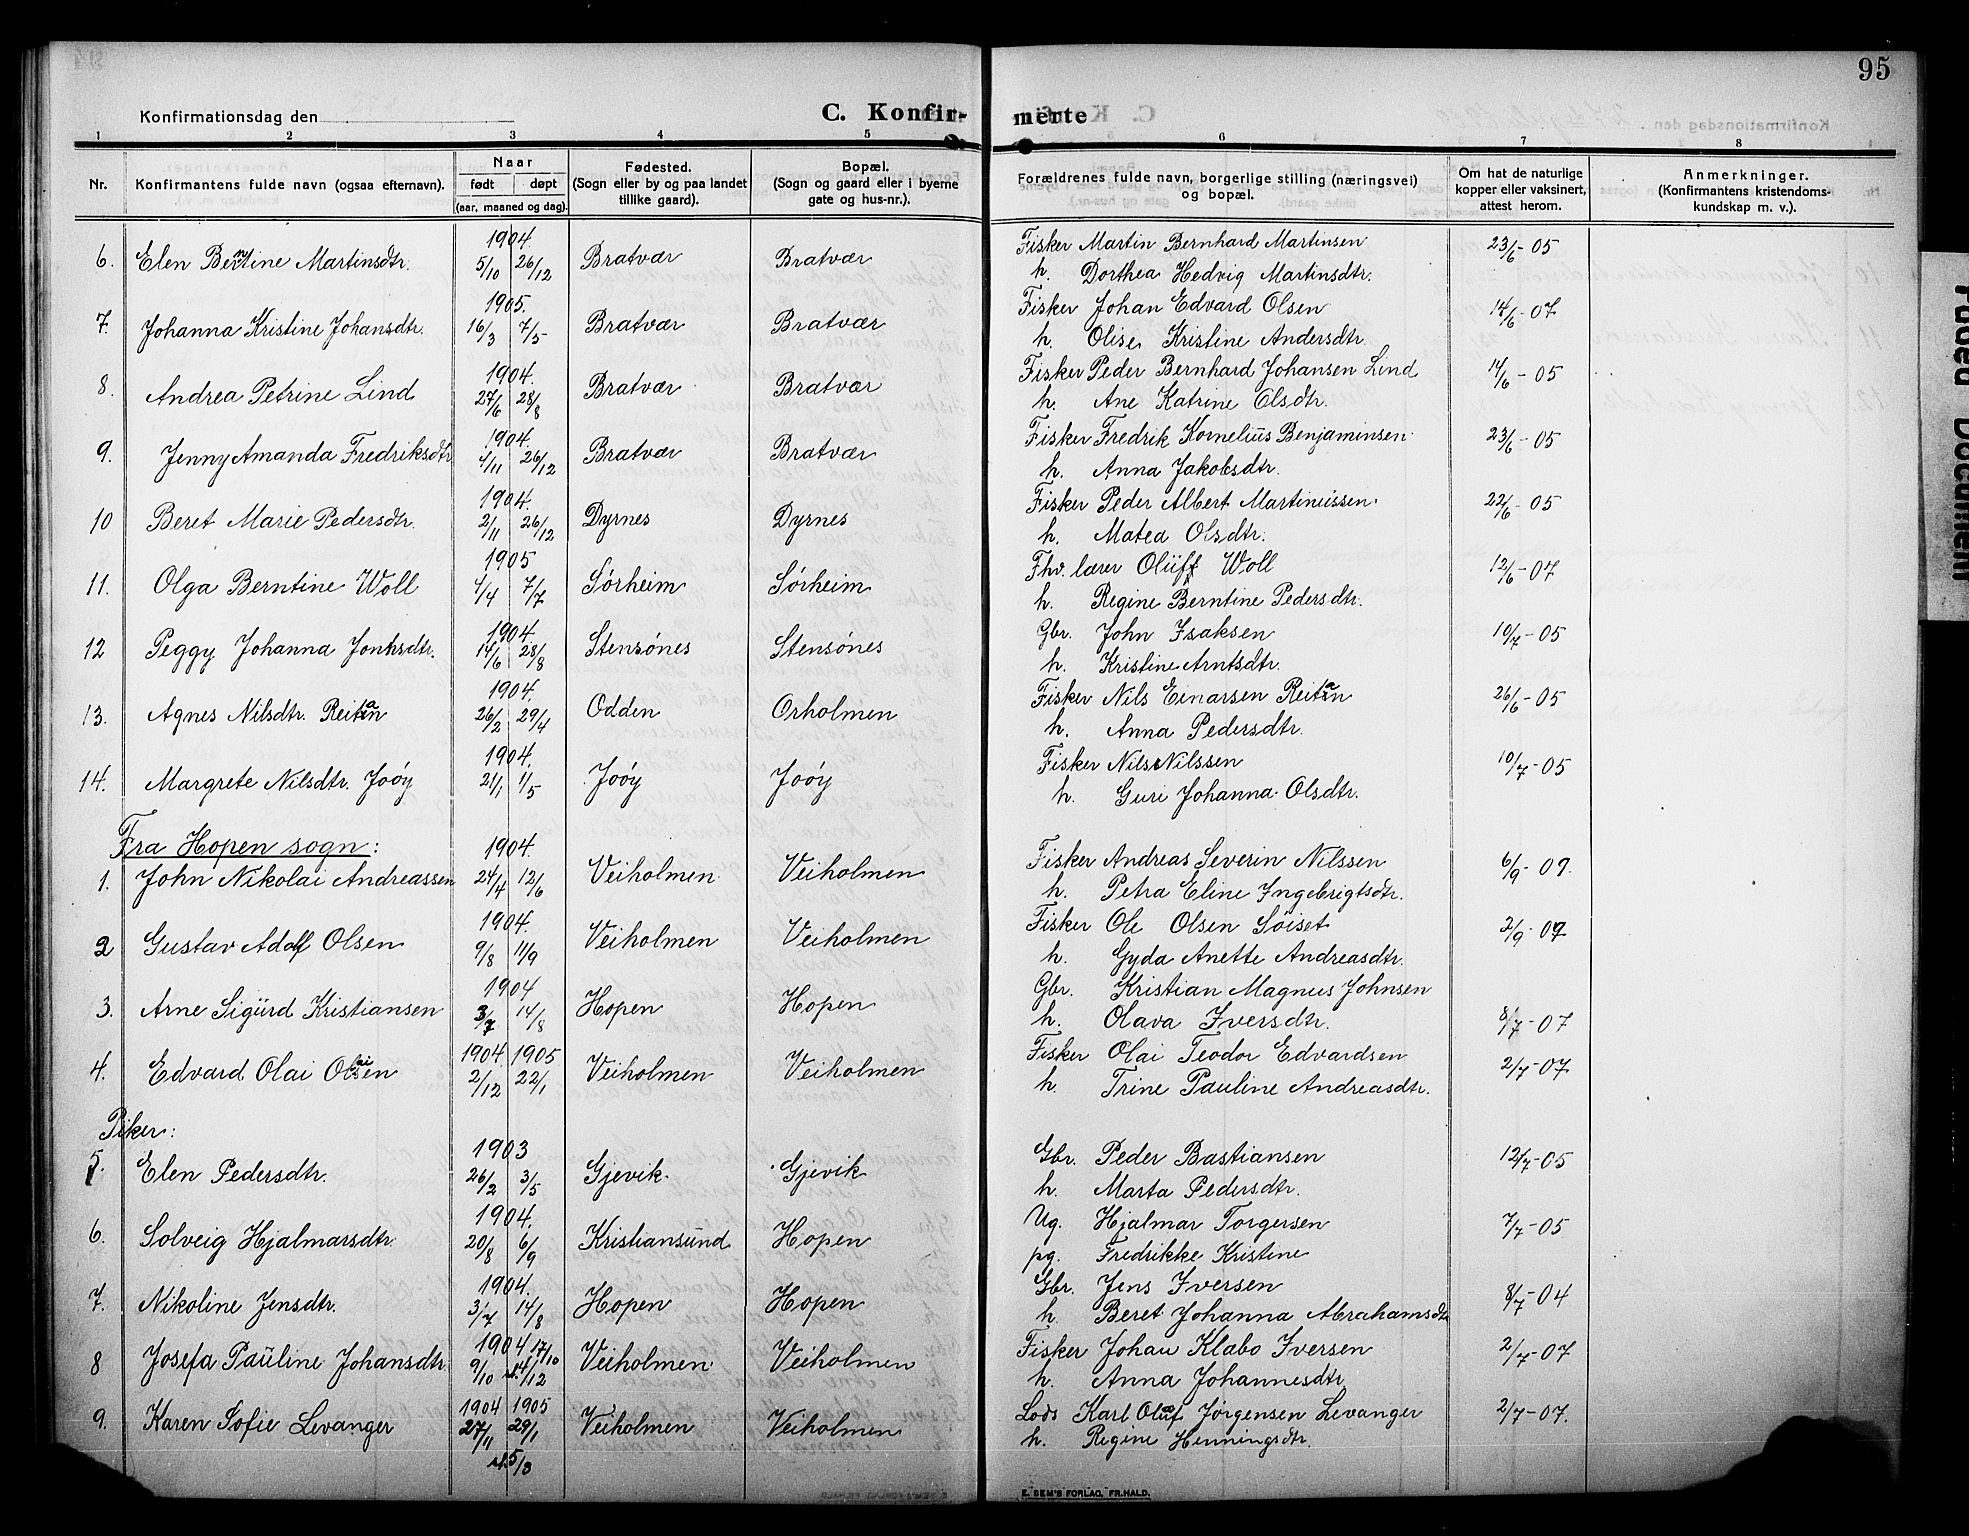 95
Konfirmationsdag den
C. Konfir- merte
1 2 3 4 5 6 7 8
Nr. Konfirmantens fulde navn (ogsaa efternavn). Naar født døpt (aar, maaned og dag). Fødested. (Sogn eller by og paa landet tillike gaard). Bopæl. (Sogn og gaard eller i byerne gate og hus-nr.). Forældrenes fulde navn, borgerlige stilling (næringsvei) og bopæl. Om hat de naturlige kopper eller vaksinert, attest herom. Anmerkninger. (Konfirmantens kristendoms- kundskap m. v.).
1904. Fisker Martin Bernhard Martinsen
6. Elen Berntine Martinsdtr. 5/10 26/12 Bratvær Bratvær h. Dorthea Hedvig Martinsdtr. 23/6-05
1905. Fisker Johan Edvard Olsen
7. Johanna Kristine Johansdtr. 16/3 7/5 Bratvær Bratvær h. Olise Kristine Andersdtr. 14/6-07
1904. Fisker Peder Bernhard Johansen Lind
8. Andrea Petrine Lind 27/6 28/8 Bratvær Bratvær h. Ane Katrine Olsdtr. 14/6-05
1904. Fisker Fredrik Kornelius Benjaminsen
9. Jenny Amanda Fredriksdtr 4/11 26/12 Bratvær Bratvær h. Anna Jakobsdtr. 23/6-05
1904. Fisker Peder Albert Martinussen
10 Beret Marie Pedersdtr. 2/11 26/12 Dyrnes Dyrnes h. Matea Olsdtr. 22/6-05
1905 Fhv. lærer Oluf Woll
11. Olga Berntine Woll 4/4 7/7 Sørheim Sørheim h. Regine Berntine Pedersdtr. 12/6-07
1904. Gbr. John Isaksen
12 Peggy Johanna Johnsdtr. 14/6 28/8 Stensønes Stensønes h. Kristine Arntsdtr. 10/7-05
1904. Fisker Nils Einarsen Reitan
13. Agnes Nilsdtr. Reitan 26/2 29/4 Odden Orholmen h. Anna Pedersdtr. 26/6-05
1904. Fisker Nils Nilssen
14. Margrete Nilsdtr. Joøy 21/1 1/5 Joøy Joøy h. Guri Johanna Olsdtr. 10/7-05
Fra Hopen sogn:
1904. Fisker Andreas Severin Nilssen
1. John Nikolai Andreassen 24/4 12/6 Veiholmen Veiholmen h. Petra Eline Ingebrigtsdtr. 6/9-07.
1904. Fisker Ole Olsen Søiset
2 Gustav Adolf Olsen 9/8 11/9 Veiholmen Veiholmen h. Gyda Anette Andreasdtr. 2/9-07
1904 Gbr. Kristian Magnus Johnsen
3. Arne Sigurd Kristiansen 3/7 14/8 Hopen Hopen h. Olava Iversdtr. 8/7-07
1904. 1905 Fisker Olai Teodor Edvardsen
4. Edvard Olai Olaisen 2/12 22/1 Veiholmen Veiholmen h. Trine Pauline Andreasdtr. 2/7-07
Piker:
1903 Gbr. Peder Bastiansen
5. Elen Pedersdtr. 26/2 3/5 Gjevik Gjevik h. Marta Pedersdtr. 12/7-05
1904. Ug. Hjalmar Torgersen
6. Solveig Hjalmarsdtr. 20/8 6/9 Kristiansund Hopen pg. Fredrikke Kristine 7/7-05
1904. Gbr. Jens Iversen
7. Nikoline Jensdtr. 3/7 14/8 Hopen Hopen h. Beret Johanna Abrahamsdtr 8/7-04
1904 17/10 Fisker Johan Klabo Iversen
8 Josefa Pauline Johansdtr. 9/10 st. 4/12 Veiholmen Veiholmen h. Anna Johannesdtr 2/7-07
1904 1905 Lods Karl Oluf Jørgensen Levanger
9. Karen Sofie Levanger 27/11 29/1 st. 5/3 Veiholmen Veiholmen h. Regine Henningsdtr. 2/7-07.
E. SEM'S FORLAG, FR.HALD.
Faded Document